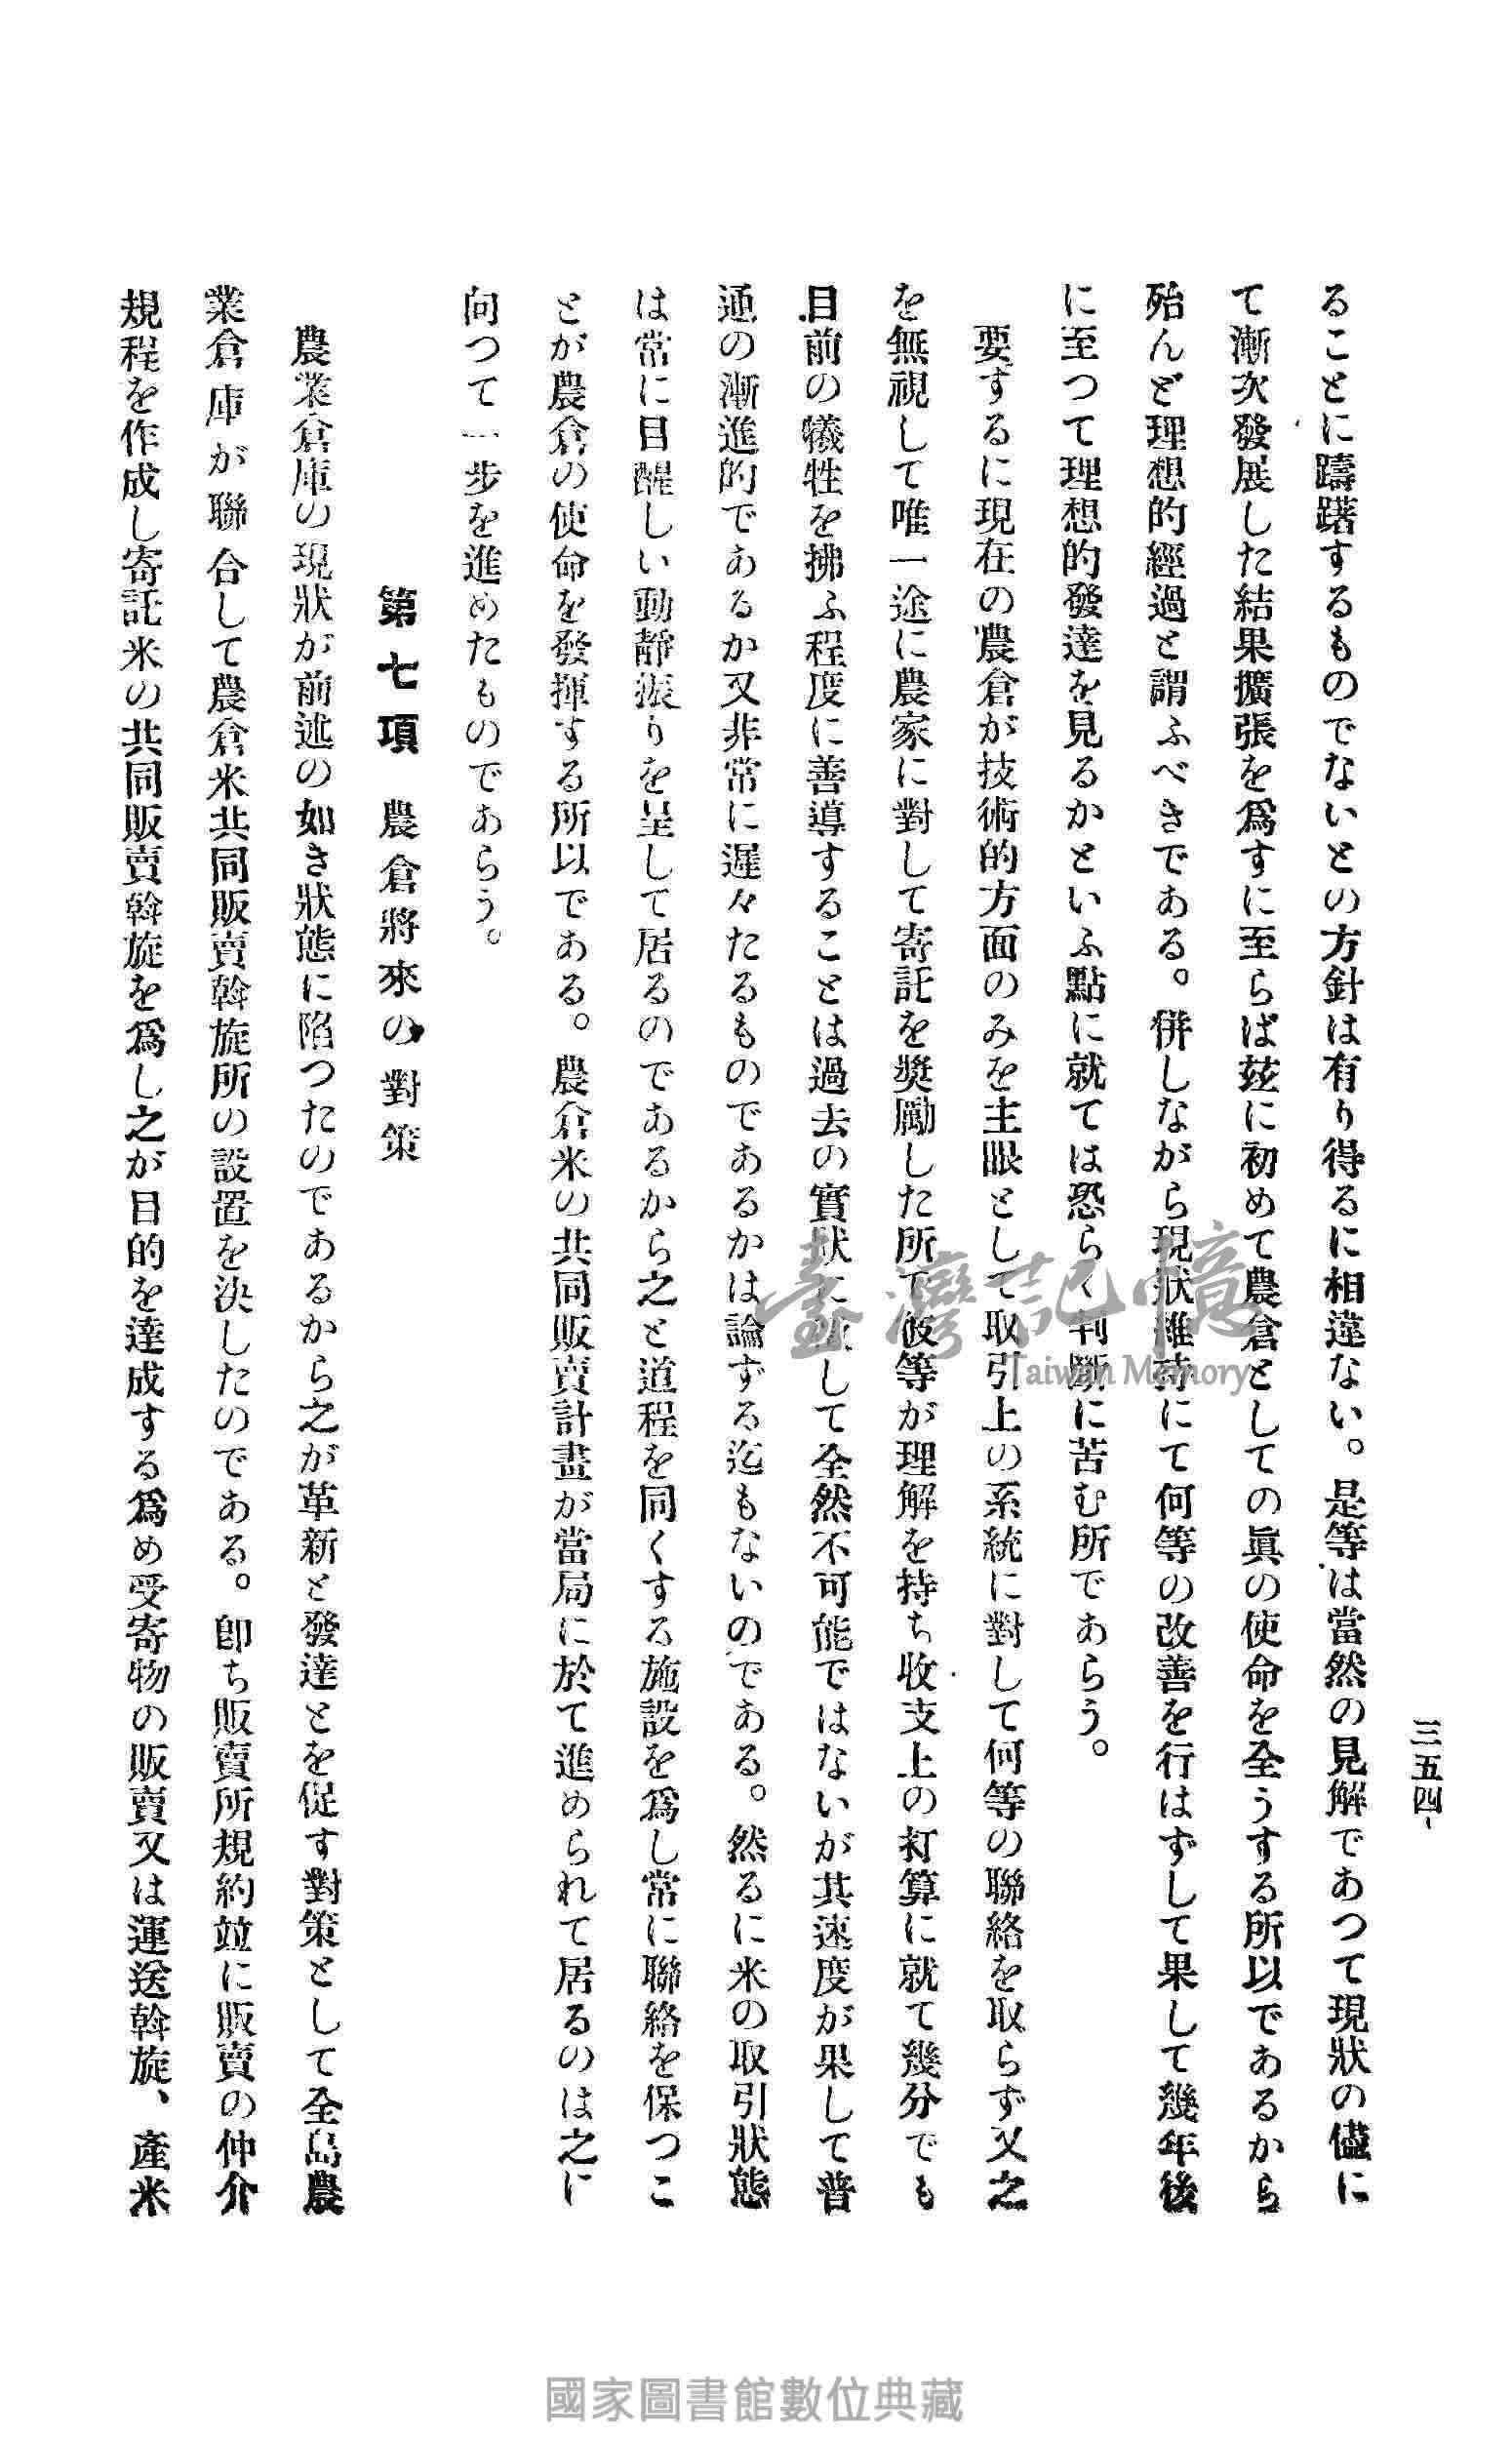 三五四
ることに躊躇するものでないとの方針は有り得るに相違ない。是等は當然の見解であつて現狀の儘に
て漸次發展した結果擴張を爲すに至らば玆に初めて農倉としての眞の使命を全うする所以であるから
殆んど理想的經過と謂ふべきである。併しながら現狀維持にて何等の改善を行はずして果して幾年後
に至つて理想的發達を見るかといふ點に就ては恐らく判斷に苦む所であらう。
要するに現在の農倉が技術的方面のみを主眼として取引上の系統に對して何等の聯絡を取らず又之
を無視して唯一途に農家に對して寄託を奬勵した所で彼等が理解を持ち收支上の打算に就て幾分でも
目前の犧牲を拂ふ程度に善導することは過去の實狀に して全然不可能ではないが其速度が果して普
通の漸進的であるか又非常に遲々たるものであるかは論ずる迄もないのである。然るに米の取引狀態
は常に目醒しい動靜振りを呈して居るのであるから之と道程を同くする施設を爲し常に聯絡を保つこ
とが農倉の使命を發揮する所以である。農倉米の共同販賣計畫が當局に於て進められて居るのは之に
向つて一步を進めたものであらう。
第七項 農倉將來の對策
農業倉庫の現狀が前述の如き狀態に陷つたのであるから之が革新と發達とを促す對策として全島農
業倉庫が聯合して農倉米共同販賣斡旋所の設置を決したのである。卽ち販賣所規約竝に販賣の仲介
規程を作成し寄託米の共同販賣斡旋を爲し之が目的を達成する爲め受寄物の販賣又は運送斡旋、產米
臺灣記憶
Taiwan Memory
國家圖書館數位典藏